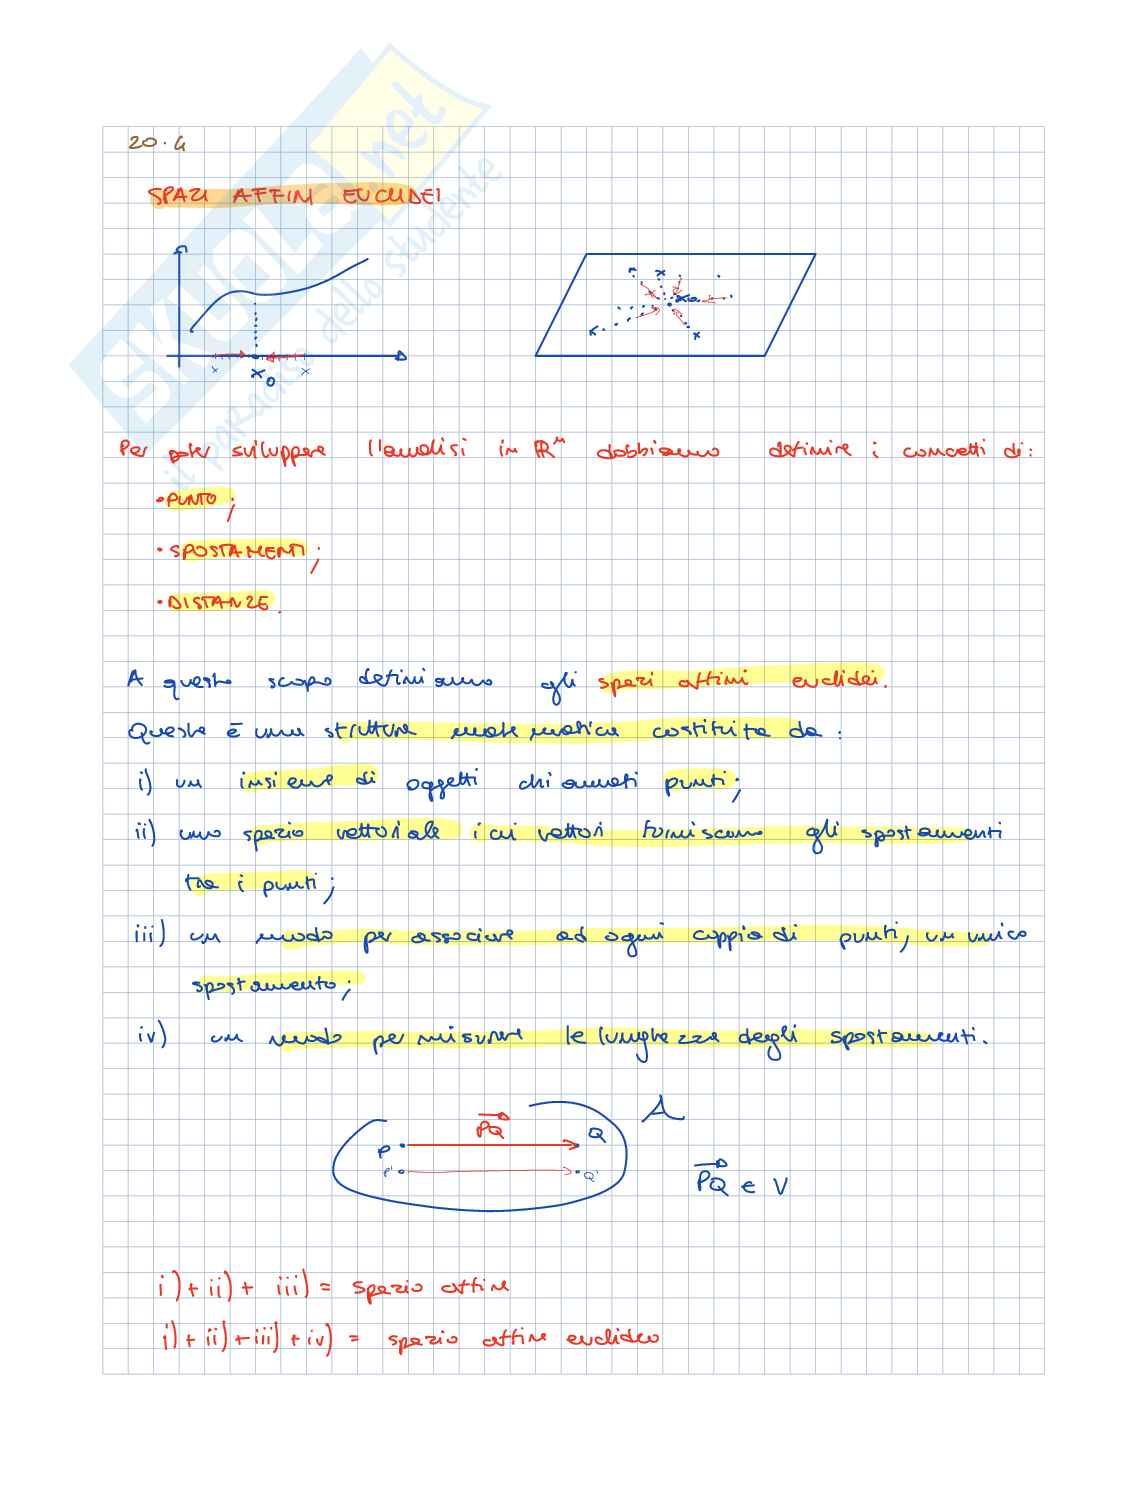 20.4
SPAZI AFFINI EUCLIDEI
x
x0
x
x
x
x0
x
x
Per poter sviluppare l'analisi in ℝⁿ dobbiamo definire i concetti di:
• PUNTO;
• SPOSTAMENTI;
• DISTANZE.
A questo scopo definiamo gli spazi affini euclidei.
Questa è una struttura matematica costituita da:
i) un insieme di oggetti chiamati punti;
ii) uno spazio vettoriale i cui vettori forniscono gli spostamenti
tra i punti;
iii) un modo per associare ad ogni coppia di punti, un unico
spostamento;
iv) un modo per misurare le lunghezze degli spostamenti.
PQ A
P Q
P' Q'
PQ ∈ V
i) + ii) + iii) = spazio affine
i) + ii) + iii) + iv) = spazio affine euclideo
SKUOLA.net
il paradiso dello studente